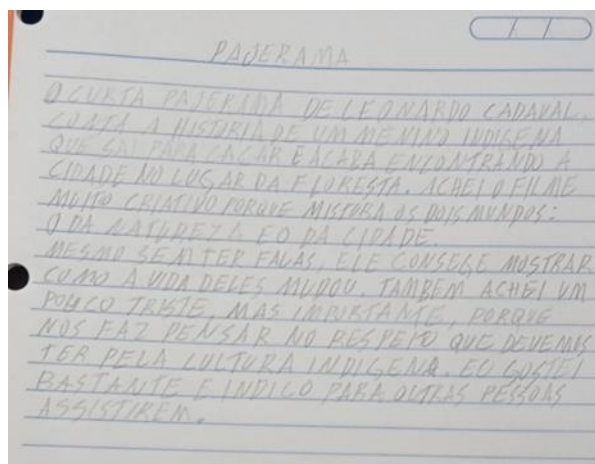 PAJERAMA
O CURTA PAJERAMA DE LEONARDO CADAVAL.
CONTA A HISTORIA DE UM MENINO INDIGENA
QUE SAI PARA CAÇAR E ACABA ENCONTRANDO A
CIDADE NO LUGAR DA FLORESTA. ACHEI O FILME
MUITO CRIATIVO PORQUE MISTURA OS DOIS MUNDOS:
O DA NATUREZA E O DA CIDADE.
MESMO SEM TER FALAS, ELE CONSEGE MOSTRAR
COMO A VIDA DELES MUDOU. TAMBEM ACHEI UM
POUCO TRISTE, MAS IMPORTANTE, PORQUE
NOS FAZ PENSAR NO RESPEITO QUE DEVEMOS
TER PELA CULTURA INDIGENA. EU GOSTEI
BASTANTE E INDICO PARA OUTRAS PESSOAS
ASSISTIREM.